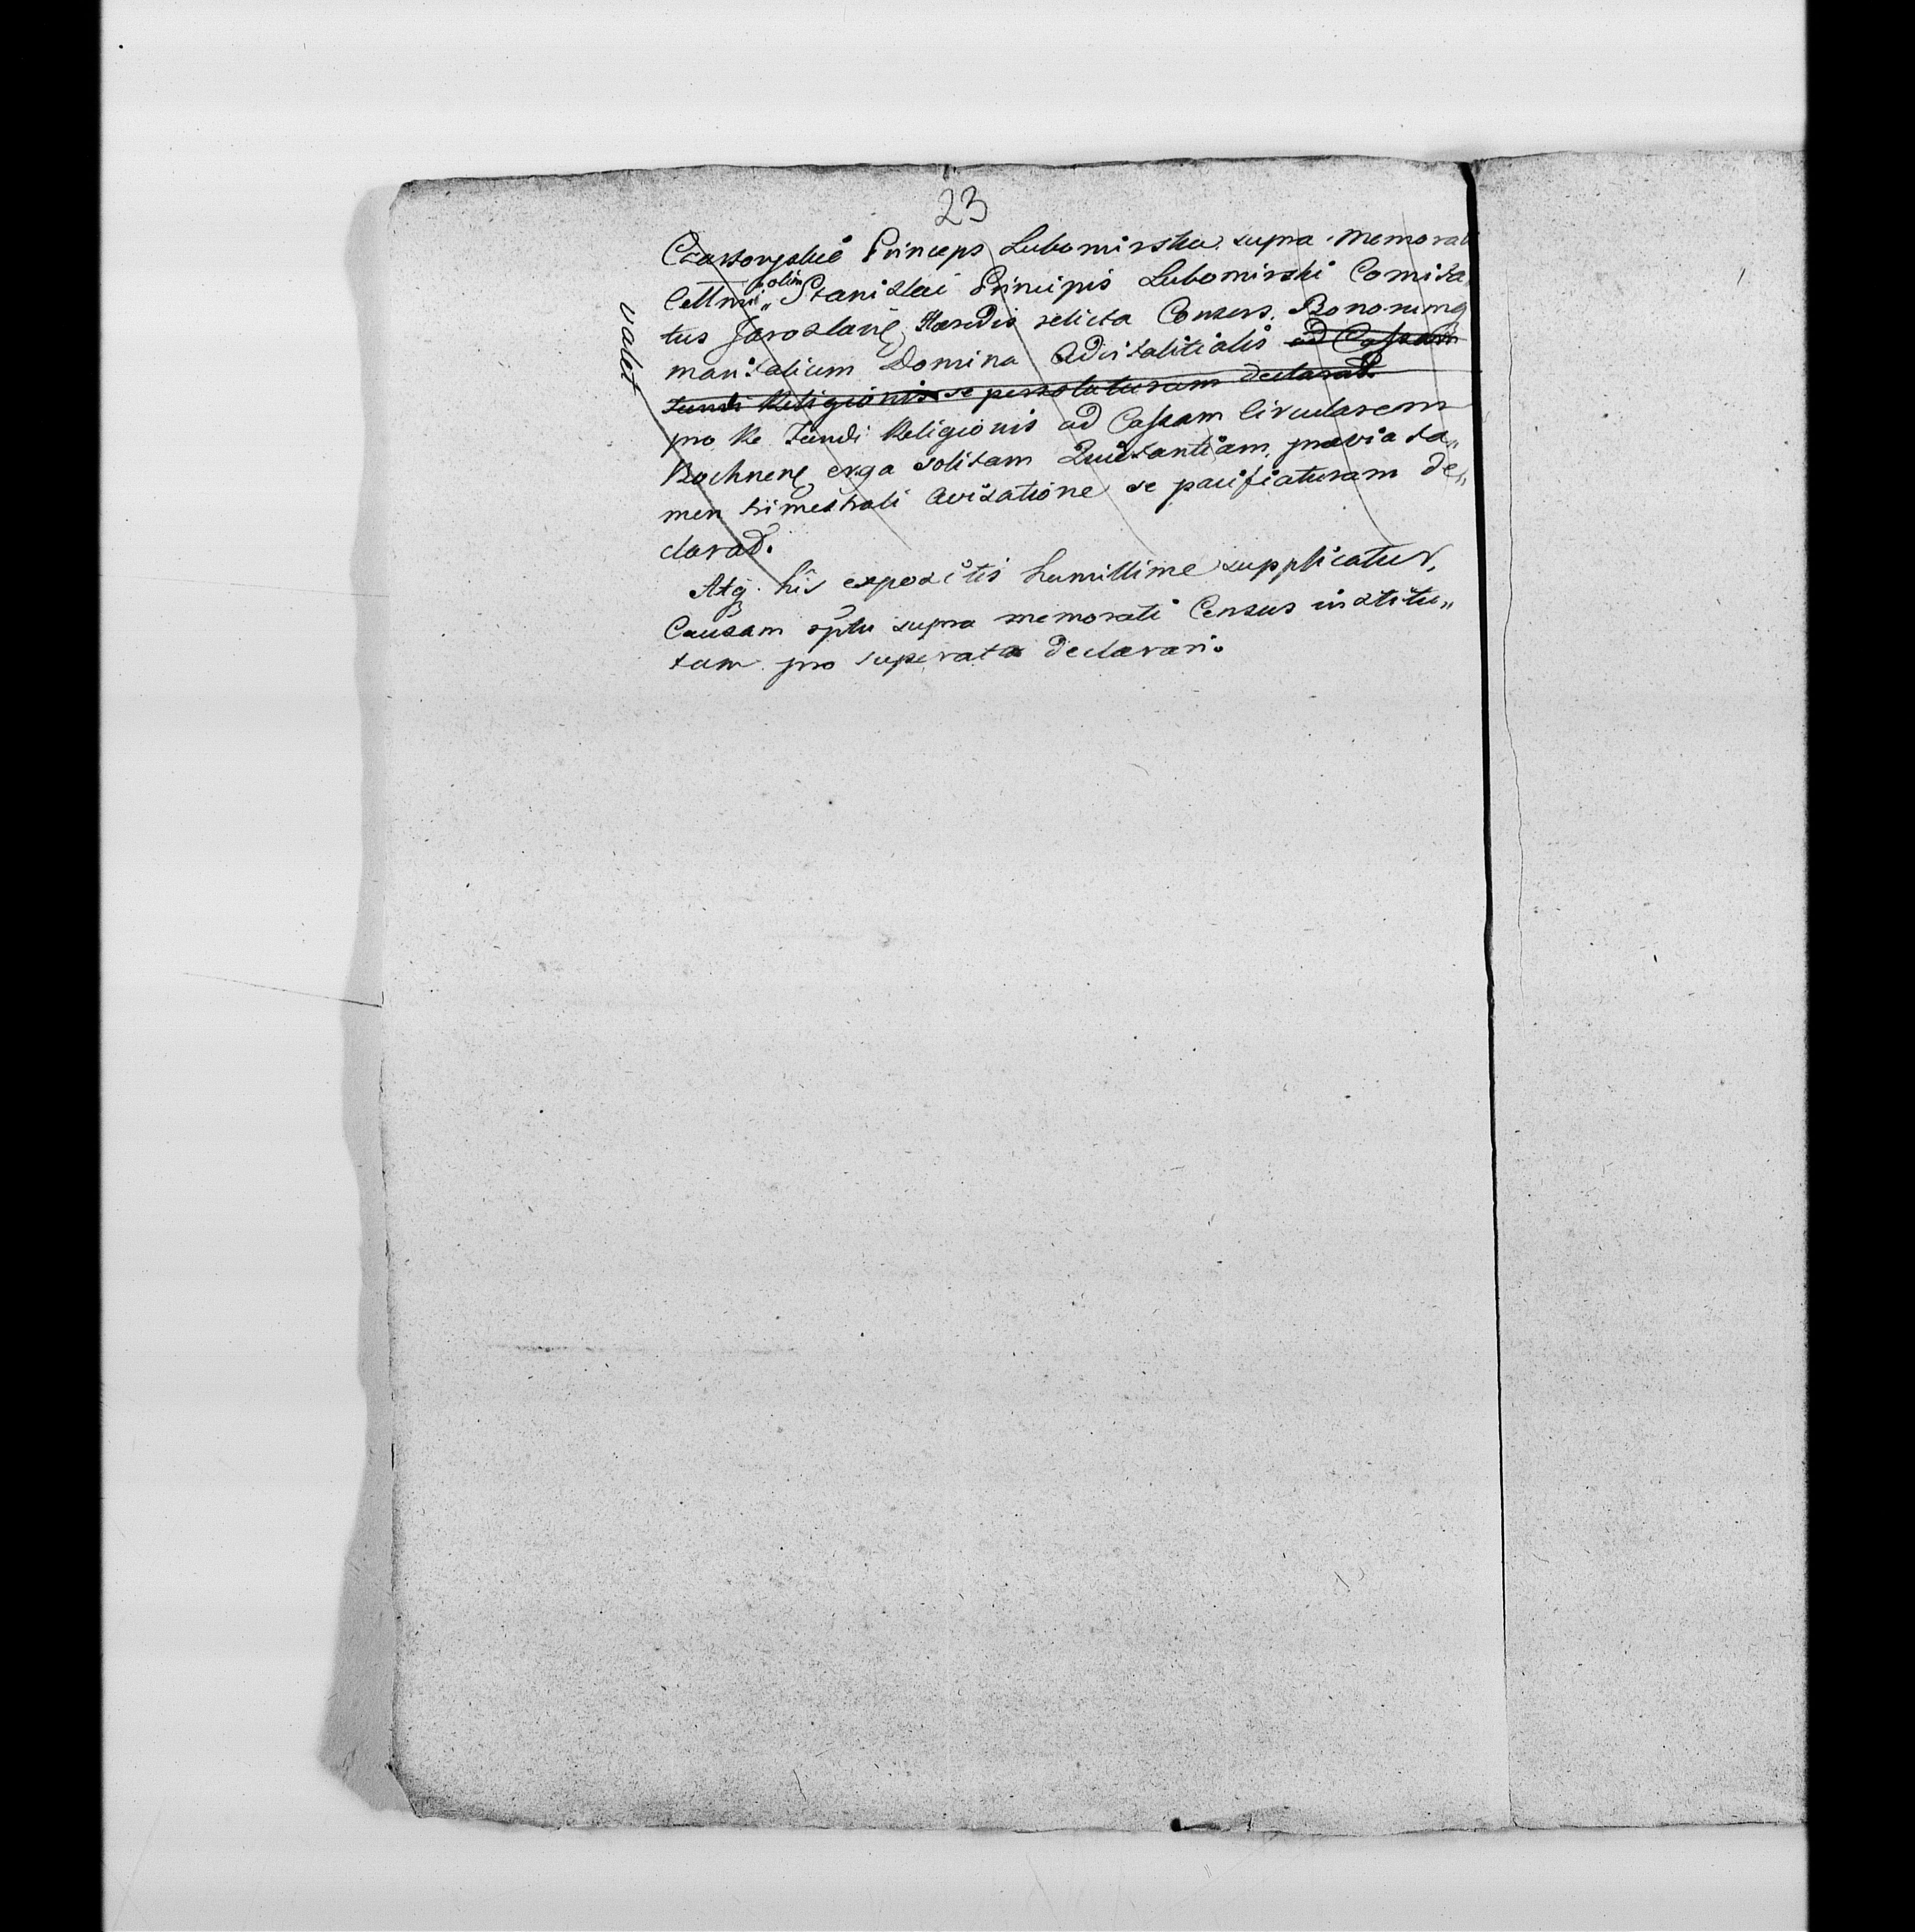 23
Czartoryskie Princeps Lubomirska supra memorati
Celsmi olim „ Stanislai Principis Lubomirski Comita
tus Jaroslavię Hæredis relicta Consors. Bonorumq
maritalium Domina Advitalitialis ad Cassam
Fundi Religionis se persoluturam declarat
pro Re Fundi Religionis ad Cassam Circularem
Bochnenę erga solitam Quietantiam, prævia ta„
men trimestrali avisatione se pacificaturam de„
clarat.
Atq. his expositis humillime supplicatur,
Causam optu supra memorati Census institu„
tam pro superata declarari.
valet